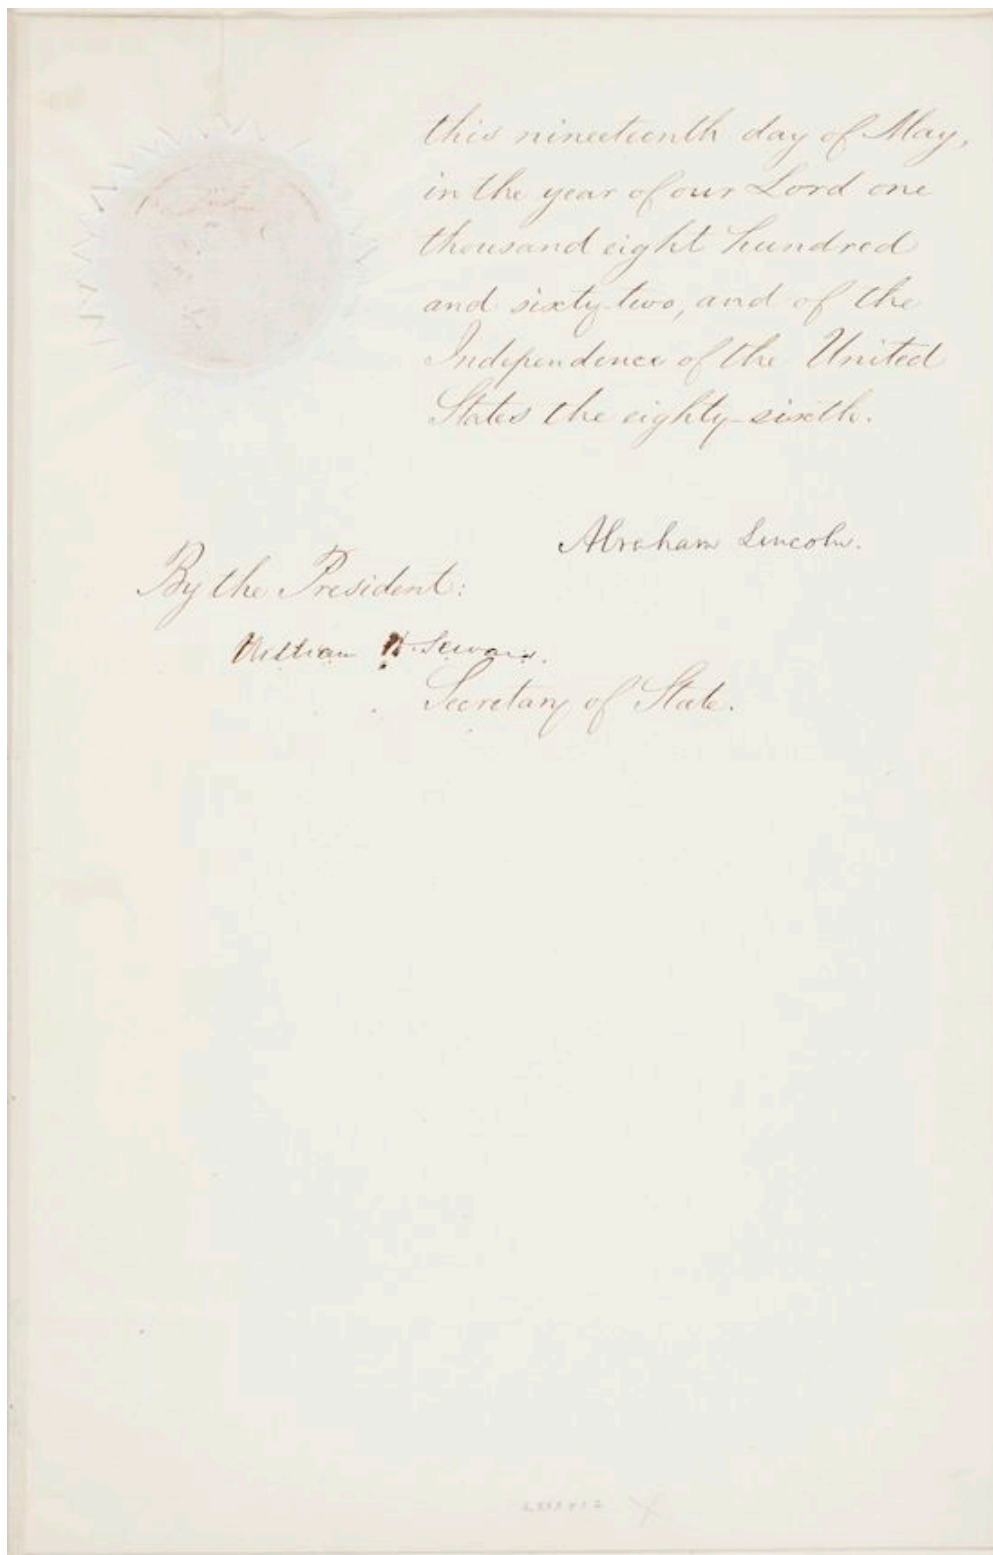 this nineteenth day of May,
in the year of our Lord one
thousand eight hundred
and sixty-two, and of the
Independence of the United
States the eighty-sixth.
Abraham Lincoln.
By the President:
William H. Seward.
Secretary of State.